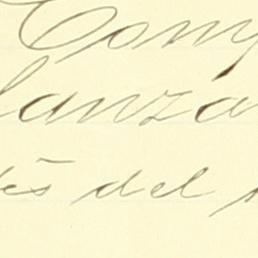 Com
lanza
és del